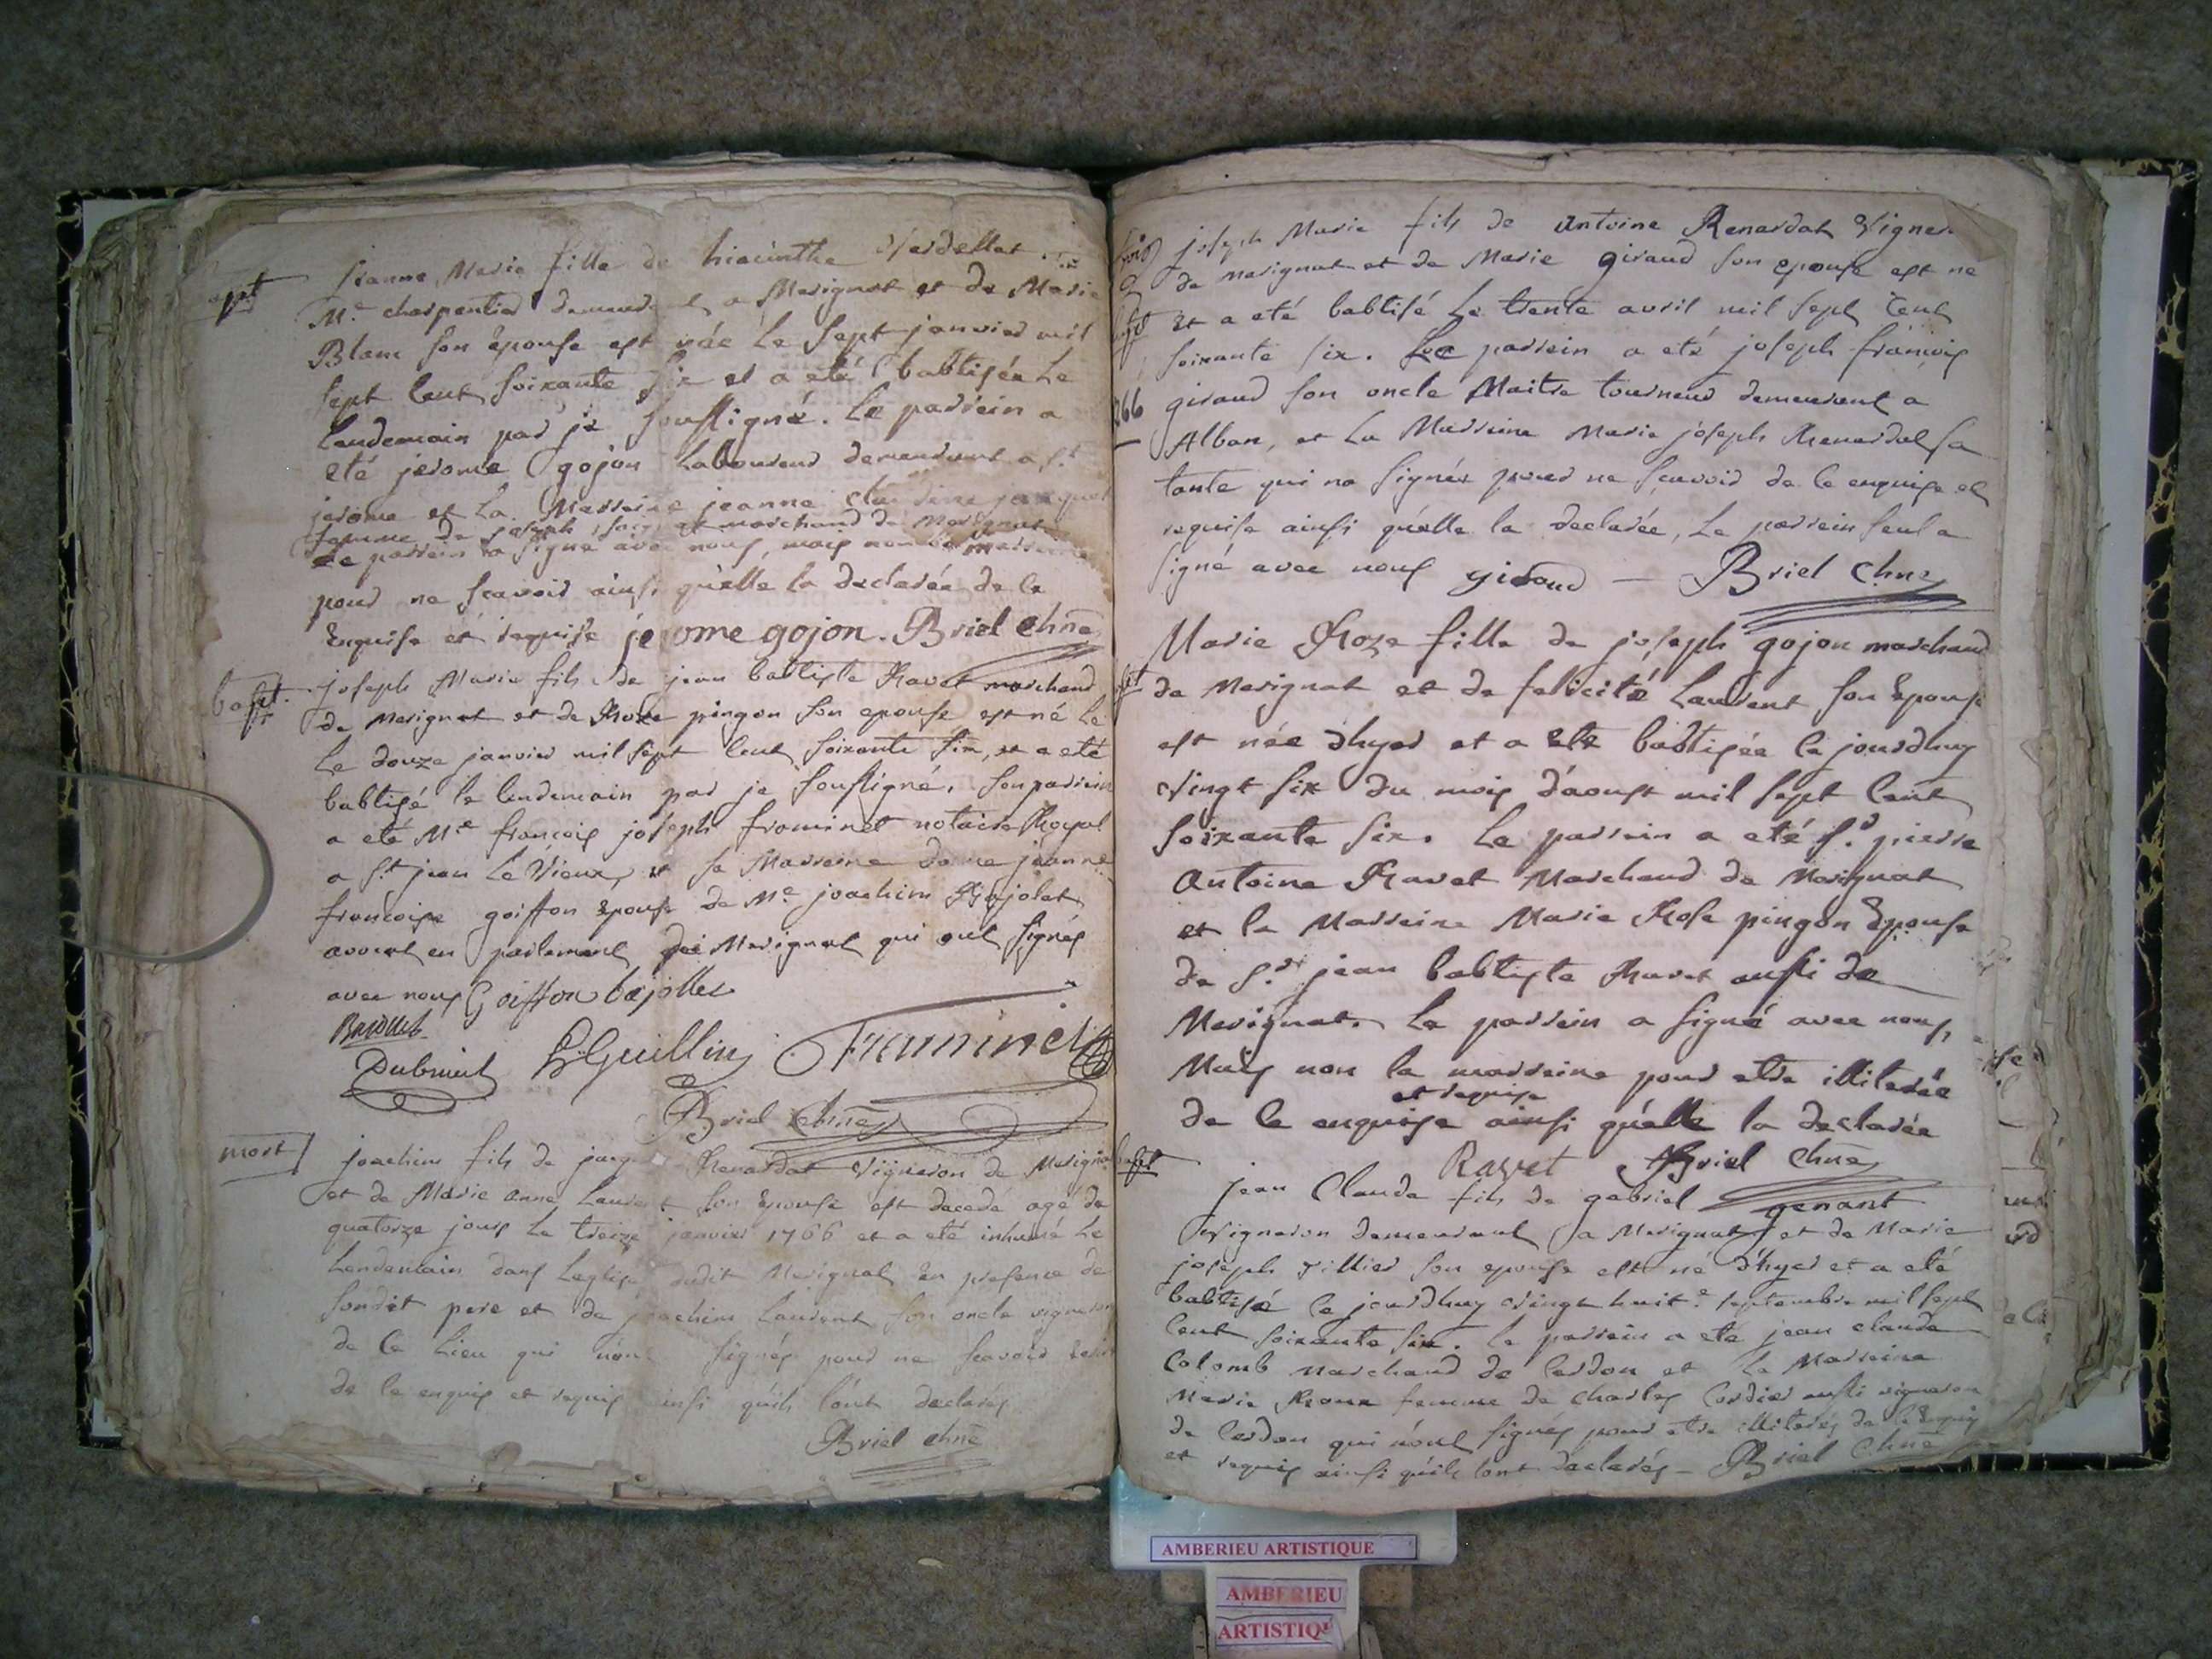 bapt
jeanne, Marie fille de hiacinthe Verdellet
M.e charpentier demeurant a Merignat et de Marie
Blanc son epouse est née le sept janvier mil
sept cent soixante six et a eté babtisée le
lendemain par je soussigné. Le parrein a
eté jerome gojon Laboureur demeurant a St
jerome et la Marreine jeanne claudine jacquet
femme de joseph marchand de Merignat
Le parrein a signé avec nous, mais non la marreine
pour ne scavoir ainsi qu'elle la declarée de ce
Enquise et requise jerome gojon. Briel Chne
bapt.
joseph Marie fils de jean babtiste Ravet marchand
de Merignat et de Roze pingon son epouse est né le
Le douze janvier mil sept cent soixante six, et a eté
babtisé le lendemain par je soussigné, son parrein
a eté Me francois joseph frominet notaire Royal
a St jean Le Vieux, et sa Marreine dame jeanne
francoise goiffon epouse de Me joachim Bajolet
avocat en parlement de Merignat qui ont signés
avec nous Goiffon bajollet
Bajollet
Dubreuil Guillin Frominet
Briel Chne
mort
joachim fils de jacque Renardat Vigneron de Merignat
et de Marie anne Laurent son Epouse est decedé agé de
quatorze jours le treize janvier 1766 et a eté inhumé le
Lendemain dans Leglise dudit Merignat en presence de
sondit pere et de joachim Laurent son oncle vigneron
de ce Lieu qui n'ont signés pour ne scavoir
de ce enquis et requis ainsi qu'ils l'ont declarés
Briel chne
joseph Marie fils de Antoine Renardat Vigneron
de merignat et de Marie giraud son epouse est né
Et a eté babtisé Le trente avril mil sept Cent
soixante six. Le parrein a eté joseph francois
giraud son oncle Maitre tourneur demeurant a
Alban, et la Marreine Marie joseph Renardat sa
tante qui na signée pour ne scavoir de ce enquise et
requise ainsi qu'elle la declarée, Le parrein seul a
signé avec nous giraud — Briel Chne
Marie Roze fille de joseph gojon marchand
de Merignat et de felicité Laurent son Epouse
est née d'hyer et a eté babtisée ce jourdhuy
vingt six du mois d'aoust mil sept Cent
soixante six. Le parrein a eté Sr. pierre
Antoine Ravet Marchand de Merignat
et la Marreine Marie Rose pingon Epouse
de Sr jean babtiste Ravet aussi de
Merignat. Le parrein a signé avec nous,
Mais non la marreine pour etre illiterée
et requise
de ce enquise ainsi qu'elle la declarée
Ravet Briel Chne
bapt
jean Claude fils de gabriel genant
Vigneron demeurant a Merignat et de Marie
joseph tillier son epouse est né d'hyer et a eté
babtisé ce jourdhuy vingt huit.e septembre mil sept
Cent soixante six. Le parrein a eté jean claude
Colomb marchand de Cerdon et la Marreine
Marie Roux femme de Charles Cordier aussi vigneron
de Cerdon qui n'ont signés pour etre illiterés de ce Enquis
et requis ainsi qu'ils l'ont declarés — Briel Chne
AMBERIEU ARTISTIQUE
AMBERIEU
ARTISTIQU